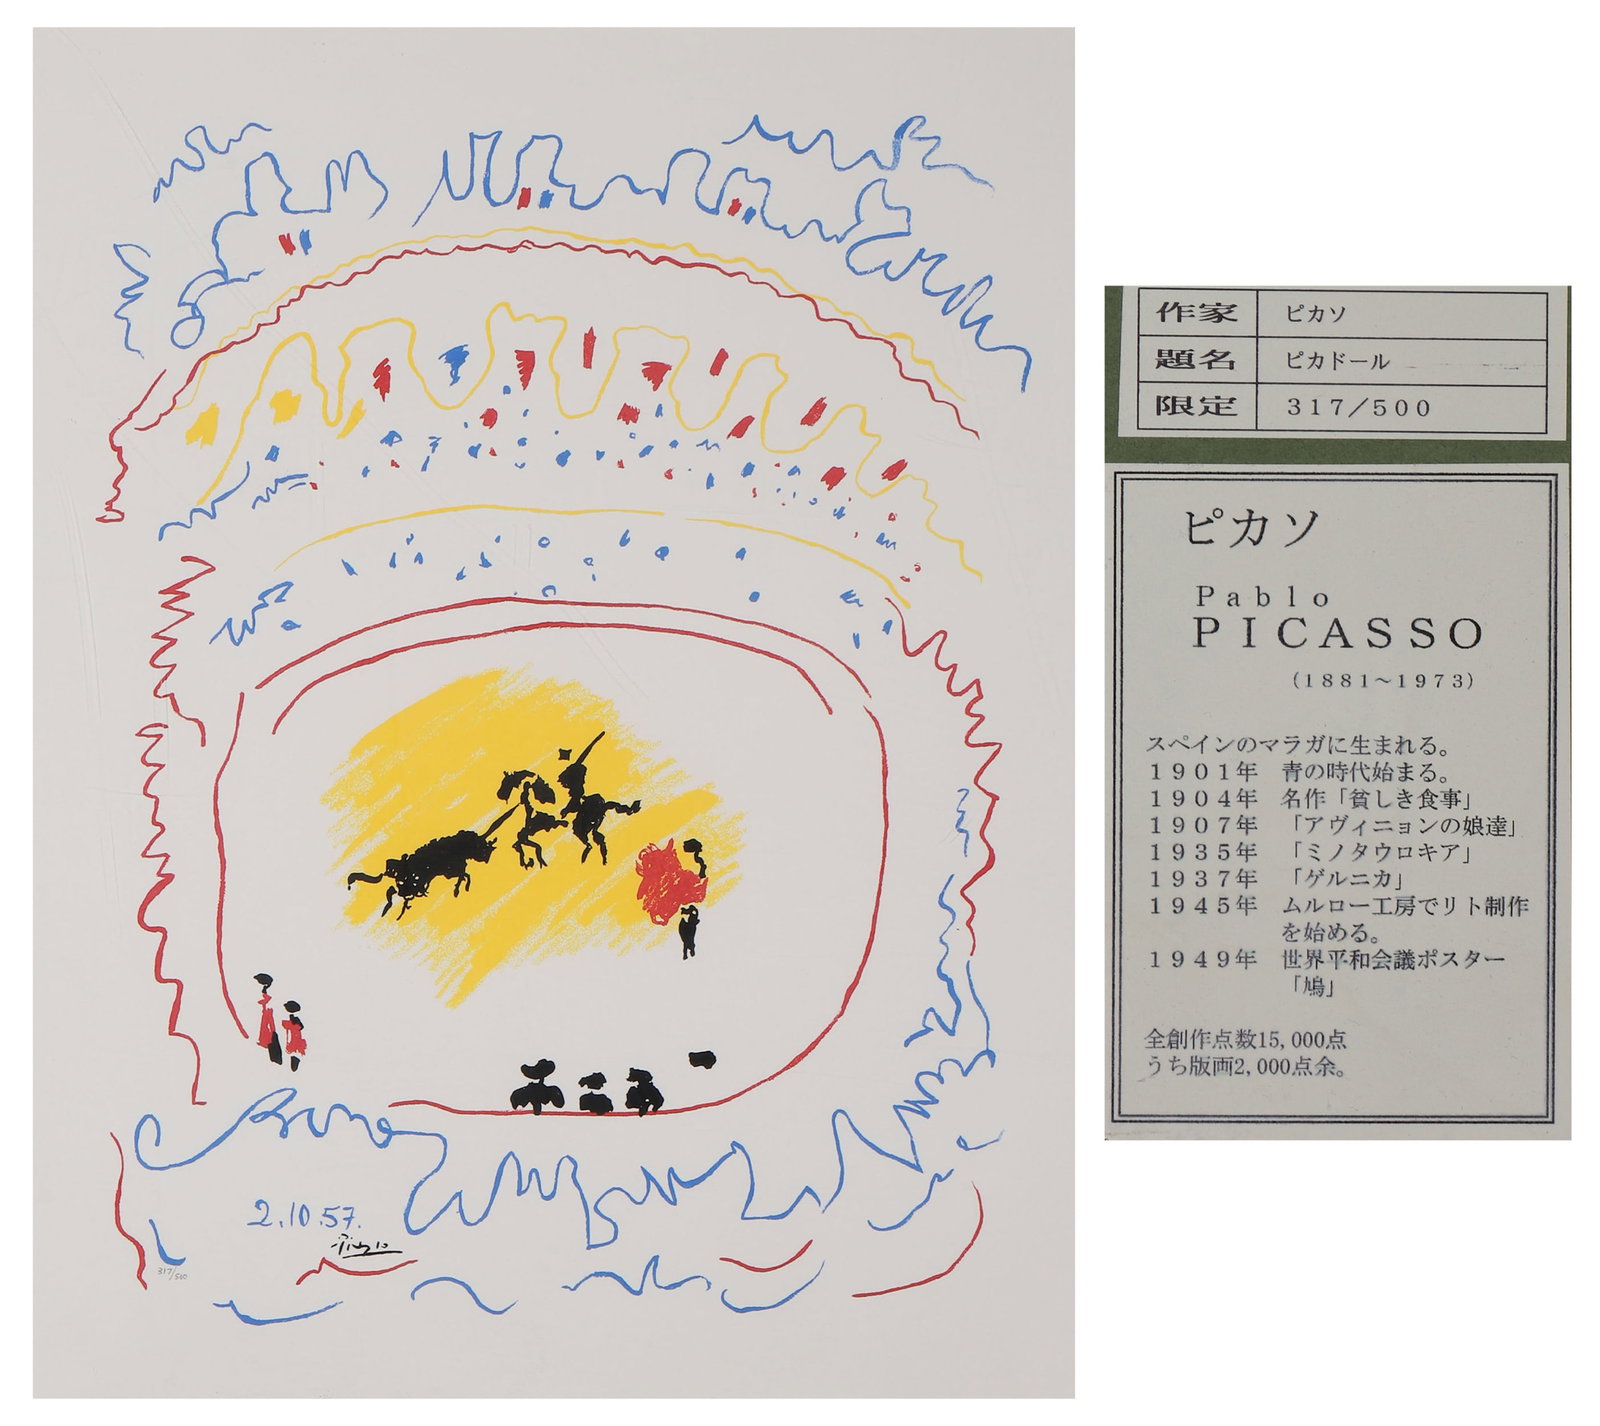 2.10.57.
Picasso
317/500
作家 ピカソ
題名 ピカドール
限定 317/500
ピカソ
Pablo
PICASSO
(1881~1973)
スペインのマラガに生まれる。
1901年 青の時代始まる。
1904年 名作「貧しき食事」
1907年 「アヴィニョンの娘達」
1935年 「ミノタウロキア」
1937年 「ゲルニカ」
1945年 ムルロー工房でリト制作
を始める。
1949年 世界平和会議ポスター
「鳩」
全創作点数15,000点
うち版画2,000点余。